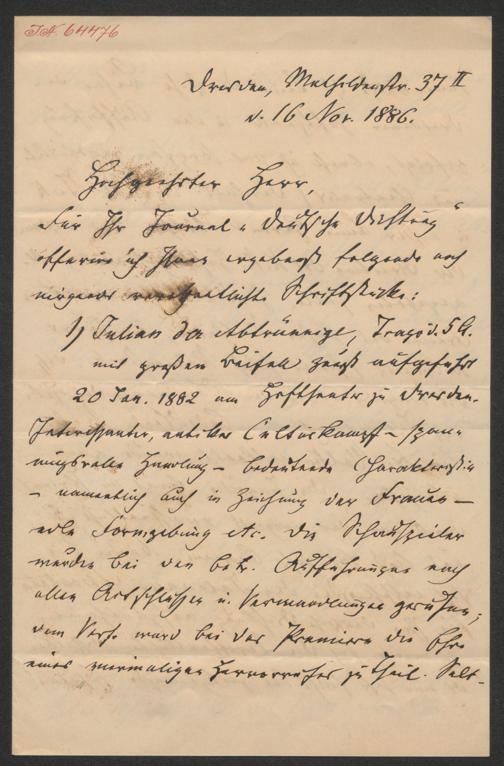 IN. 64476
Dresden, Mathildenstr. 37 II
d. 16 Nov. 1886.
Hochgeehrter Herr,
Für Ihr Journal „Deutsche Dichtung“
offerire ich Ihnen ergebenst folgende noch
nirgends veröffentlichte Schriftstücke:
1) Julian der Abtrünnige, Tragöd. 5 A.
mit großem Beifall zuerst aufgeführt
20 Jan. 1882 am Hoftheater zu Dresden.
Interessanter, antiker Culturkampf – span-
nungsvolle Handlung – bedeutende Charakteristik
– namentlich auch in Zeichnung der Frauen –
edle Formgebung etc. Die Schauspieler
wurden bei den betr. Aufführungen nach
allen Actschlüssen u. Verwandlungen gerufen;
dem Verf. ward bei der Premiere die Ehre
eines mehrmaligen Hervorrufes zu Theil. Selt-